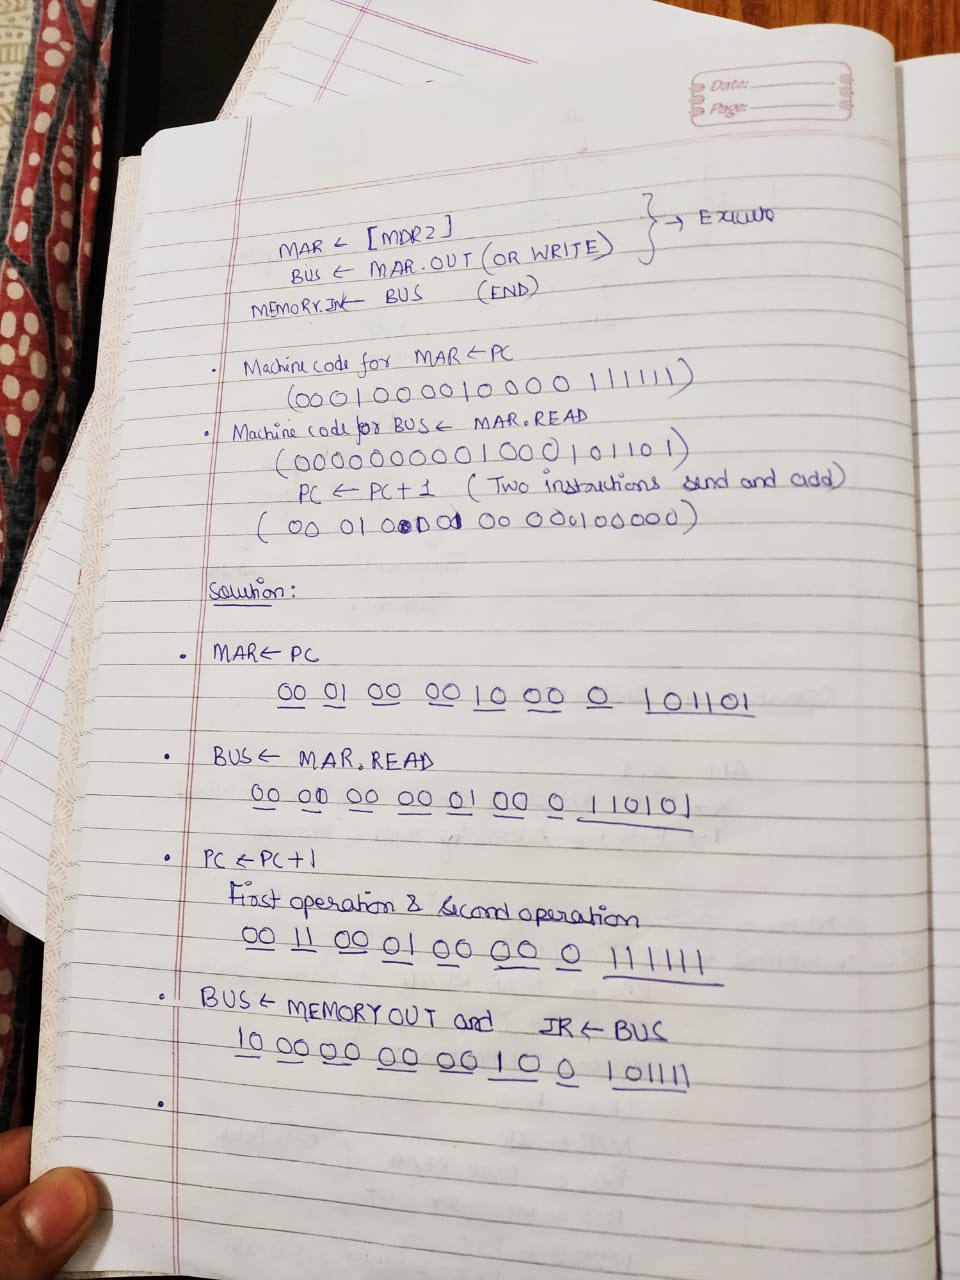 Date:
Page:
MAR ← [MDR2]
BUS ← MAR.OUT (OR WRITE) } →
MEMORY.IN ← BUS (END)
• Machine code for MAR ← PC
(0001000010000111111)
• Machine code for BUS ← MAR.READ
(0000000001000101101)
PC ← PC+1 (Two instructions send and add)
( 00 01 00 00 000100000)
Solution:
• MAR ← PC
00 01 00 00 10 00 0 101101
• BUS ← MAR.READ
00 00 00 00 01 00 0 110101
• PC ← PC+1
First operation & second operation
00 11 00 01 00 00 0 111111
• BUS ← MEMORY OUT and IR ← BUS
10 00 00 00 00 10 0 101111
•